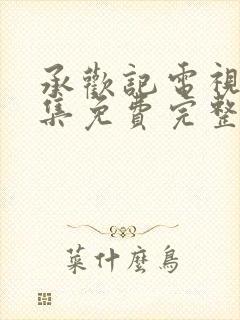 承歡記電視
集免費完整
菜什麼鳥